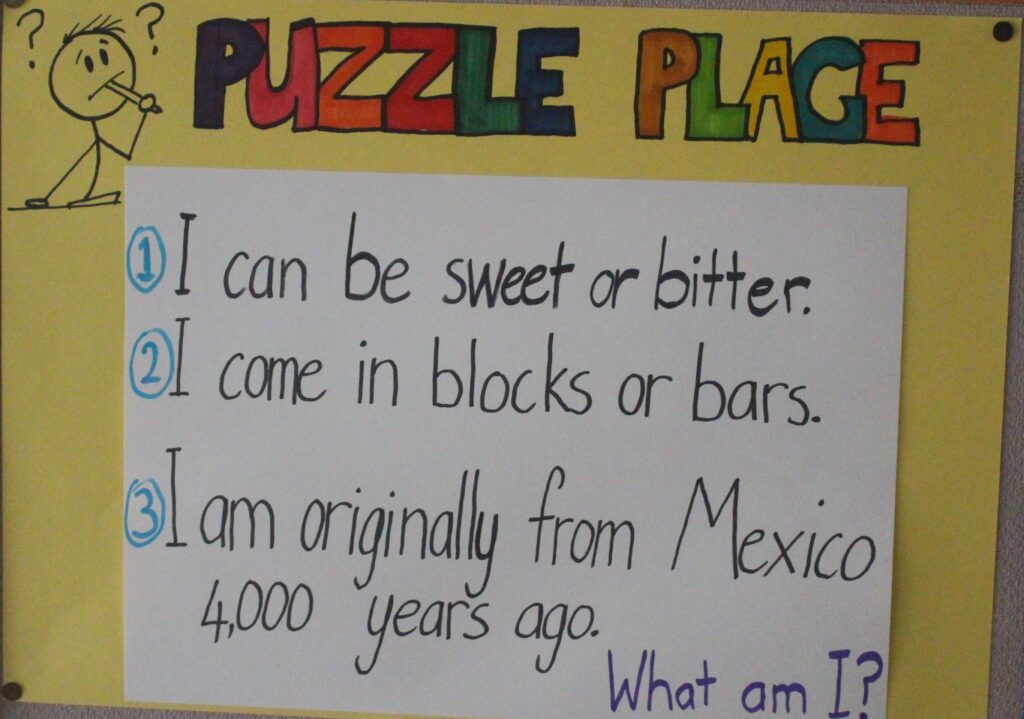 ? ?
PUZZLE PLAGE
1 I can be sweet or bitter.
2 I come in blocks or bars.
3 I am originally from Mexico
4,000 years ago.
What am I?